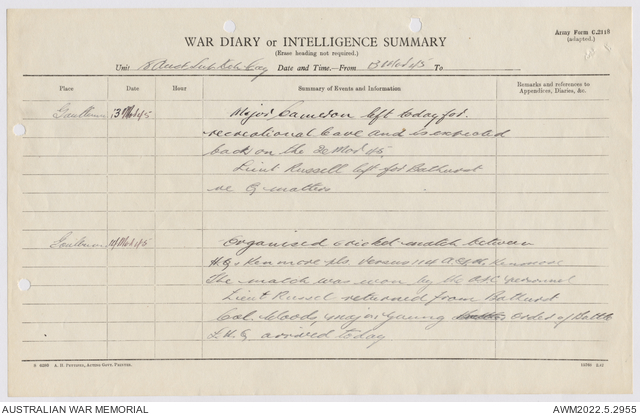 Army Form C.2118
(adapted.)
WAR DIARY or INTELLIGENCE SUMMARY
(Erase heading not required.)
Unit 8 Aust Date and Time.—From 13 Mar 45 To
Place Date Hour Summary of Events and Information Remarks and references to Appendices, Diaries, &c.
Goulburn 13 Mar 45 Major Cameson left today for
recreational leave and is expected
back on the Mar 45.
Lieut Russell left for Bathurst
re Q matters
Goulburn 14 Mar 45 Organised cricket match between
HQ & Kenmore versus 114 A.G.H. Kenmore
The match was won by the personnel
Lieut Russel returned from Bathurst
Col. Moody, Major Young Order of Battle
L.H.Q arrived today
A. H. Pettifer, Acting Govt. Printer.
AUSTRALIAN WAR MEMORIAL
AWM2022.5.2955